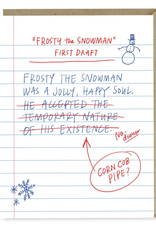 "FROSTY THE SNOWMAN"
FIRST DRAFT
FROSTY THE SNOWMAN
WAS A JOLLY, HAPPY SOUL.
HE ACCEPTED THE
TEMPORARY NATURE
OF HIS EXISTENCE.
No dunner
CORN COB
PIPE?